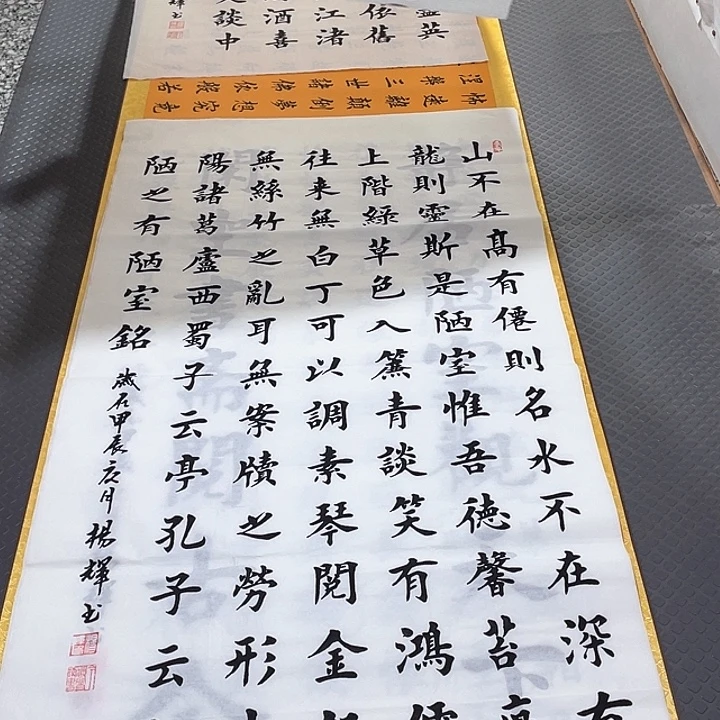 盡英
依舊
江渚
酒喜
談中
輝书
怖遠離顛倒夢想究竟
涅槃三世諸佛依般若
山不在高有僊則名水不在深有
龍則靈斯是陋室惟吾德馨苔
上階綠草色入簾青談笑有鴻儒
往来無白丁可以調素琴閱金
無絲竹之亂耳無案牘之勞形
陽諸葛廬西蜀子云亭孔子云
陋之有陋室銘
歲在甲辰 月楊輝书